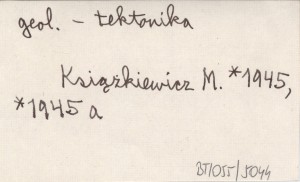 geol. – tektonika
Książkiewicz M. *1945,
*1945 a
BT/055/5044